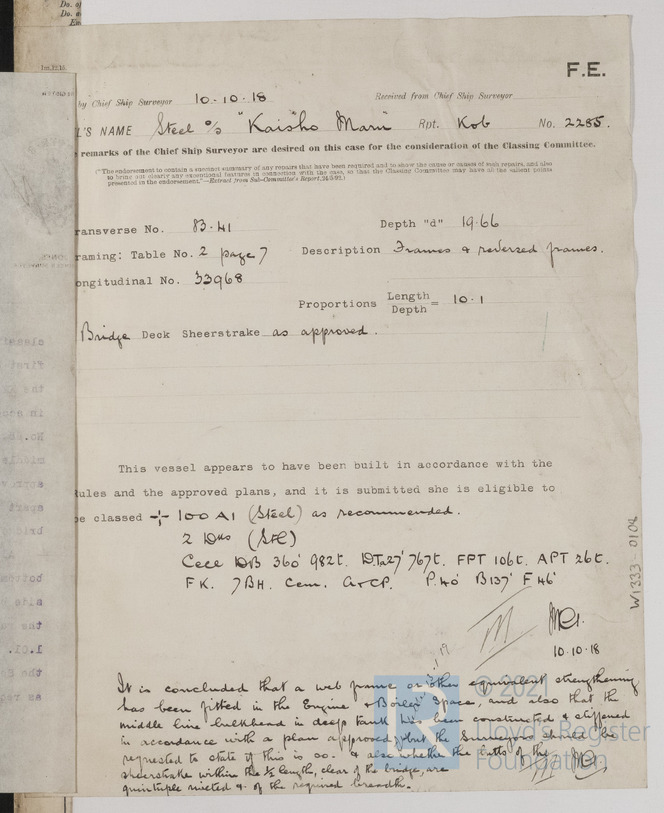 F.E.
by Chief Ship Surveyor 10-10-18 Received from Chief Ship Surveyor
L'S NAME Steel s/s "Kaisho Maru" Rpt. Kob No. 2285.
remarks of the Chief Ship Surveyor are desired on this case for the consideration of the Classing Committee.
("The endorsement to contain a succinct summary of any repairs that have been required and to show the cause or causes of such repairs, and also
to bring out clearly any exceptional features in connection with the case, so that the Classing Committee may have all the salient points
presented in the endorsement."—Extract from Sub-Committee's Report,
ransverse No. 83.41 Depth "d" 19.66
raming: Table No. 2 page 7 Description Frames & reversed frames.
ongitudinal No. 33968
Proportions Length/Depth = 10.1
Bridge Deck Sheerstrake as approved.
This vessel appears to have been built in accordance with the
Rules and the approved plans, and it is submitted she is eligible to
be classed + 100A1 (Steel) as recommended.
2 Dks (Stl)
Cell DB 360' 982t. DTa27' 767t. FPT 106t. APT 26t.
FK. 7BH. Cem. P.40' B137' F46'
10.10.18
It is concluded that a web frame or other equivalent strengthening
has been fitted in the Engine & Boiler Space, and also that the
middle line bulkhead in deep tank has been constructed & stiffened
in accordance with a plan approved, but the Surveyors should be
requested to state if this is so. & also whether the butts of the
sheerstrake within the ½ length, clear of the bridge, are
quintuple riveted & of the required breadth.
W1333-0108
© 2021
Lloyd's Register
Foundation